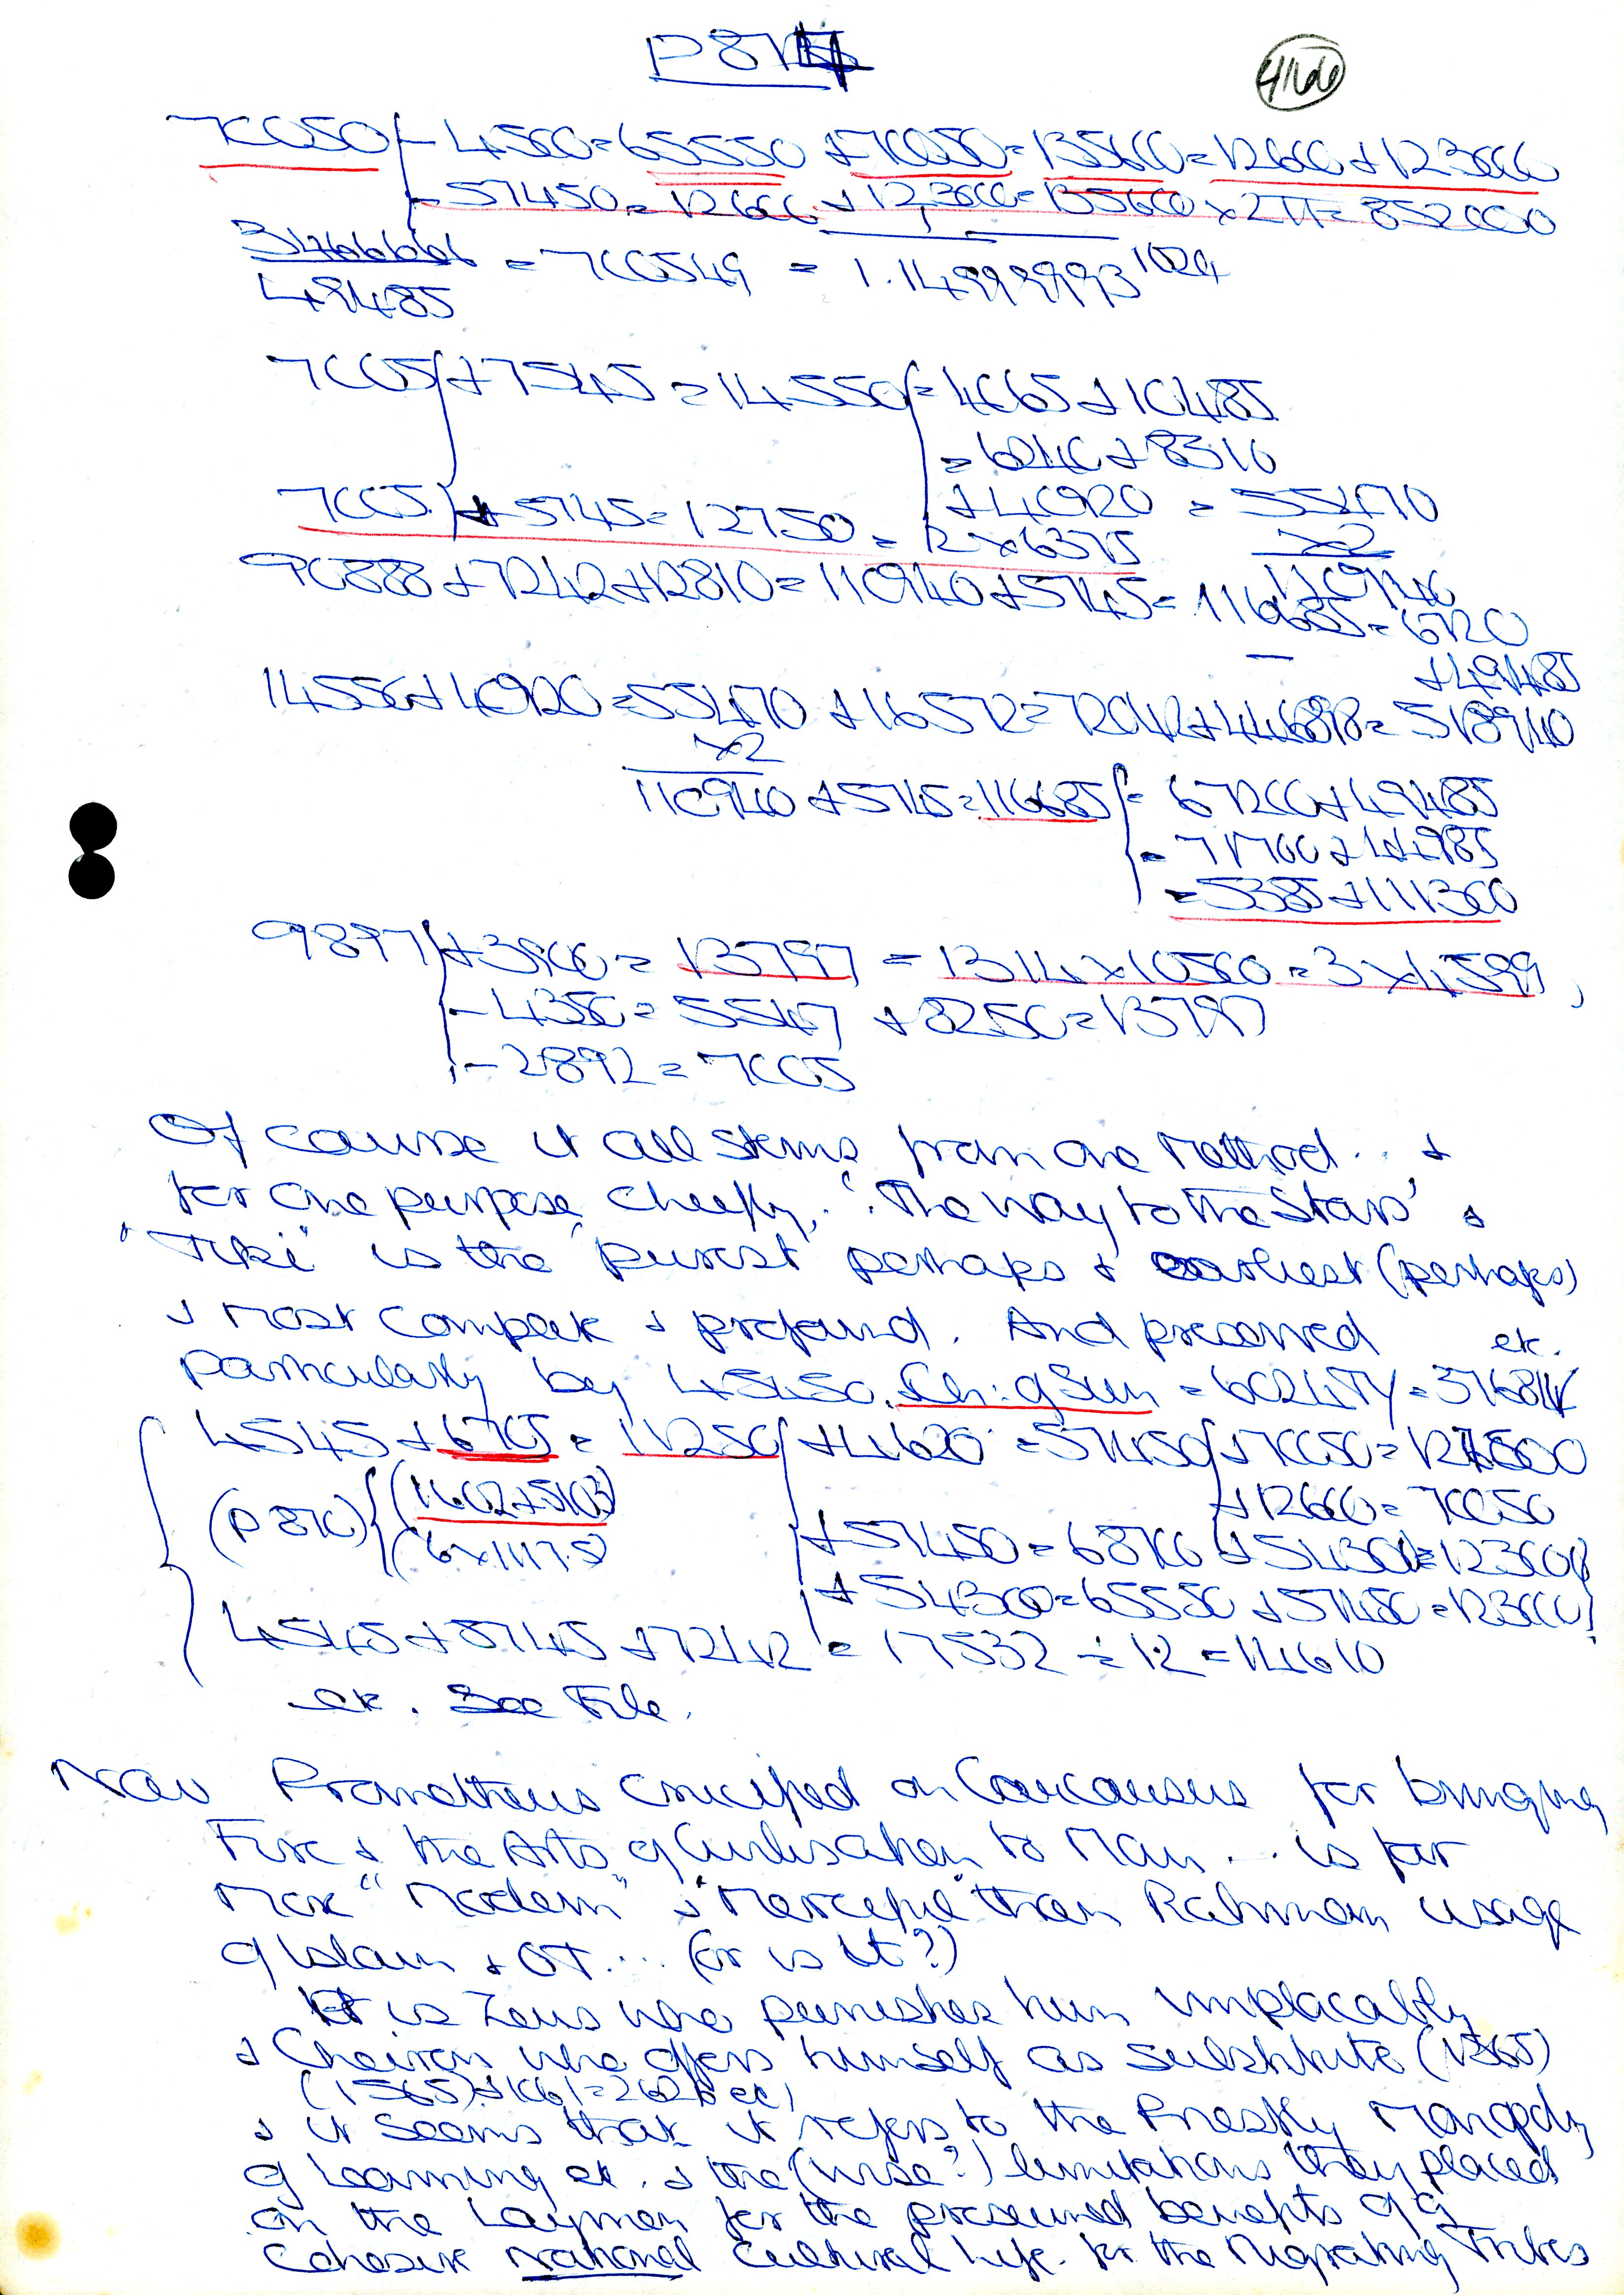 P 874
4166
70050 - 4500 = 65550 + 70050 = 135600 = 12600 + 123000
- 57450 = 12600 + 123000 = 135600 x 2π = 852000
3466666 / 49485 = 700549 = 1.14999993 1024
7005 + 7545 = 14550 = 4065 + 10485
= 6240 + 8310
+ 40920 = 55470
7005 + 5745 = 12750 = 2 x 6375 x2
90888 + 7242 + 12810 = 110940 + 5745 = 116685 = 6720
110940
+ 49485
14550 + 40920 = 55470 + 16572 = 72042 + 446898 = 518940
x2
110940 + 5745 = 116685 = 67200 + 49485
= 71700 + 44985
= 5385 + 111300
9897 + 3900 = 13797 = 1314 x 10500 = 3 x 4599,
- 4350 = 5547 + 8250 = 13797
- 2892 = 7005
Of course it all stems from one method .. &
for one purpose, cheefly, 'The way to the Stars' &
"Tiki" is the "purest" perhaps & earliest (perhaps)
& most complex & profound. And preserved etc.
particularly by 45450. Ch: of Sun =
4545 + 6705 = 11250 + 4620 = 57450 + 70050 = 127500
+ 12600 = 70050
(P 870) (1602 + 5103)
(6 x 1117.5)
+ 57450 = 68700 + 54300 = 123000
+ 54300 = 65550 + 57450 = 123000
4545 + 5745 + 7242 = 17532 ÷ 12 = 14610
etc. See File.
Now Prometheus crucified on Caucausus for bringing
Fire & the Arts of Civilisation to Man ... is far
more "Modern" & "Merceful" than Rahman usage
of Islam & OT ... (or is it?)
It is Zeus who punishes him implacably
& Cheiron who offers himself as substitute (1565)
(1565) + 1061 = 2626 etc)
& it seems that it refers to the Priestly Monopoly
of Learning etc. & the (wise?) limitations they placed
on the Laymen for the presumed benefits of a
Cohesive National Cultural Life. for the Migrating Tribes